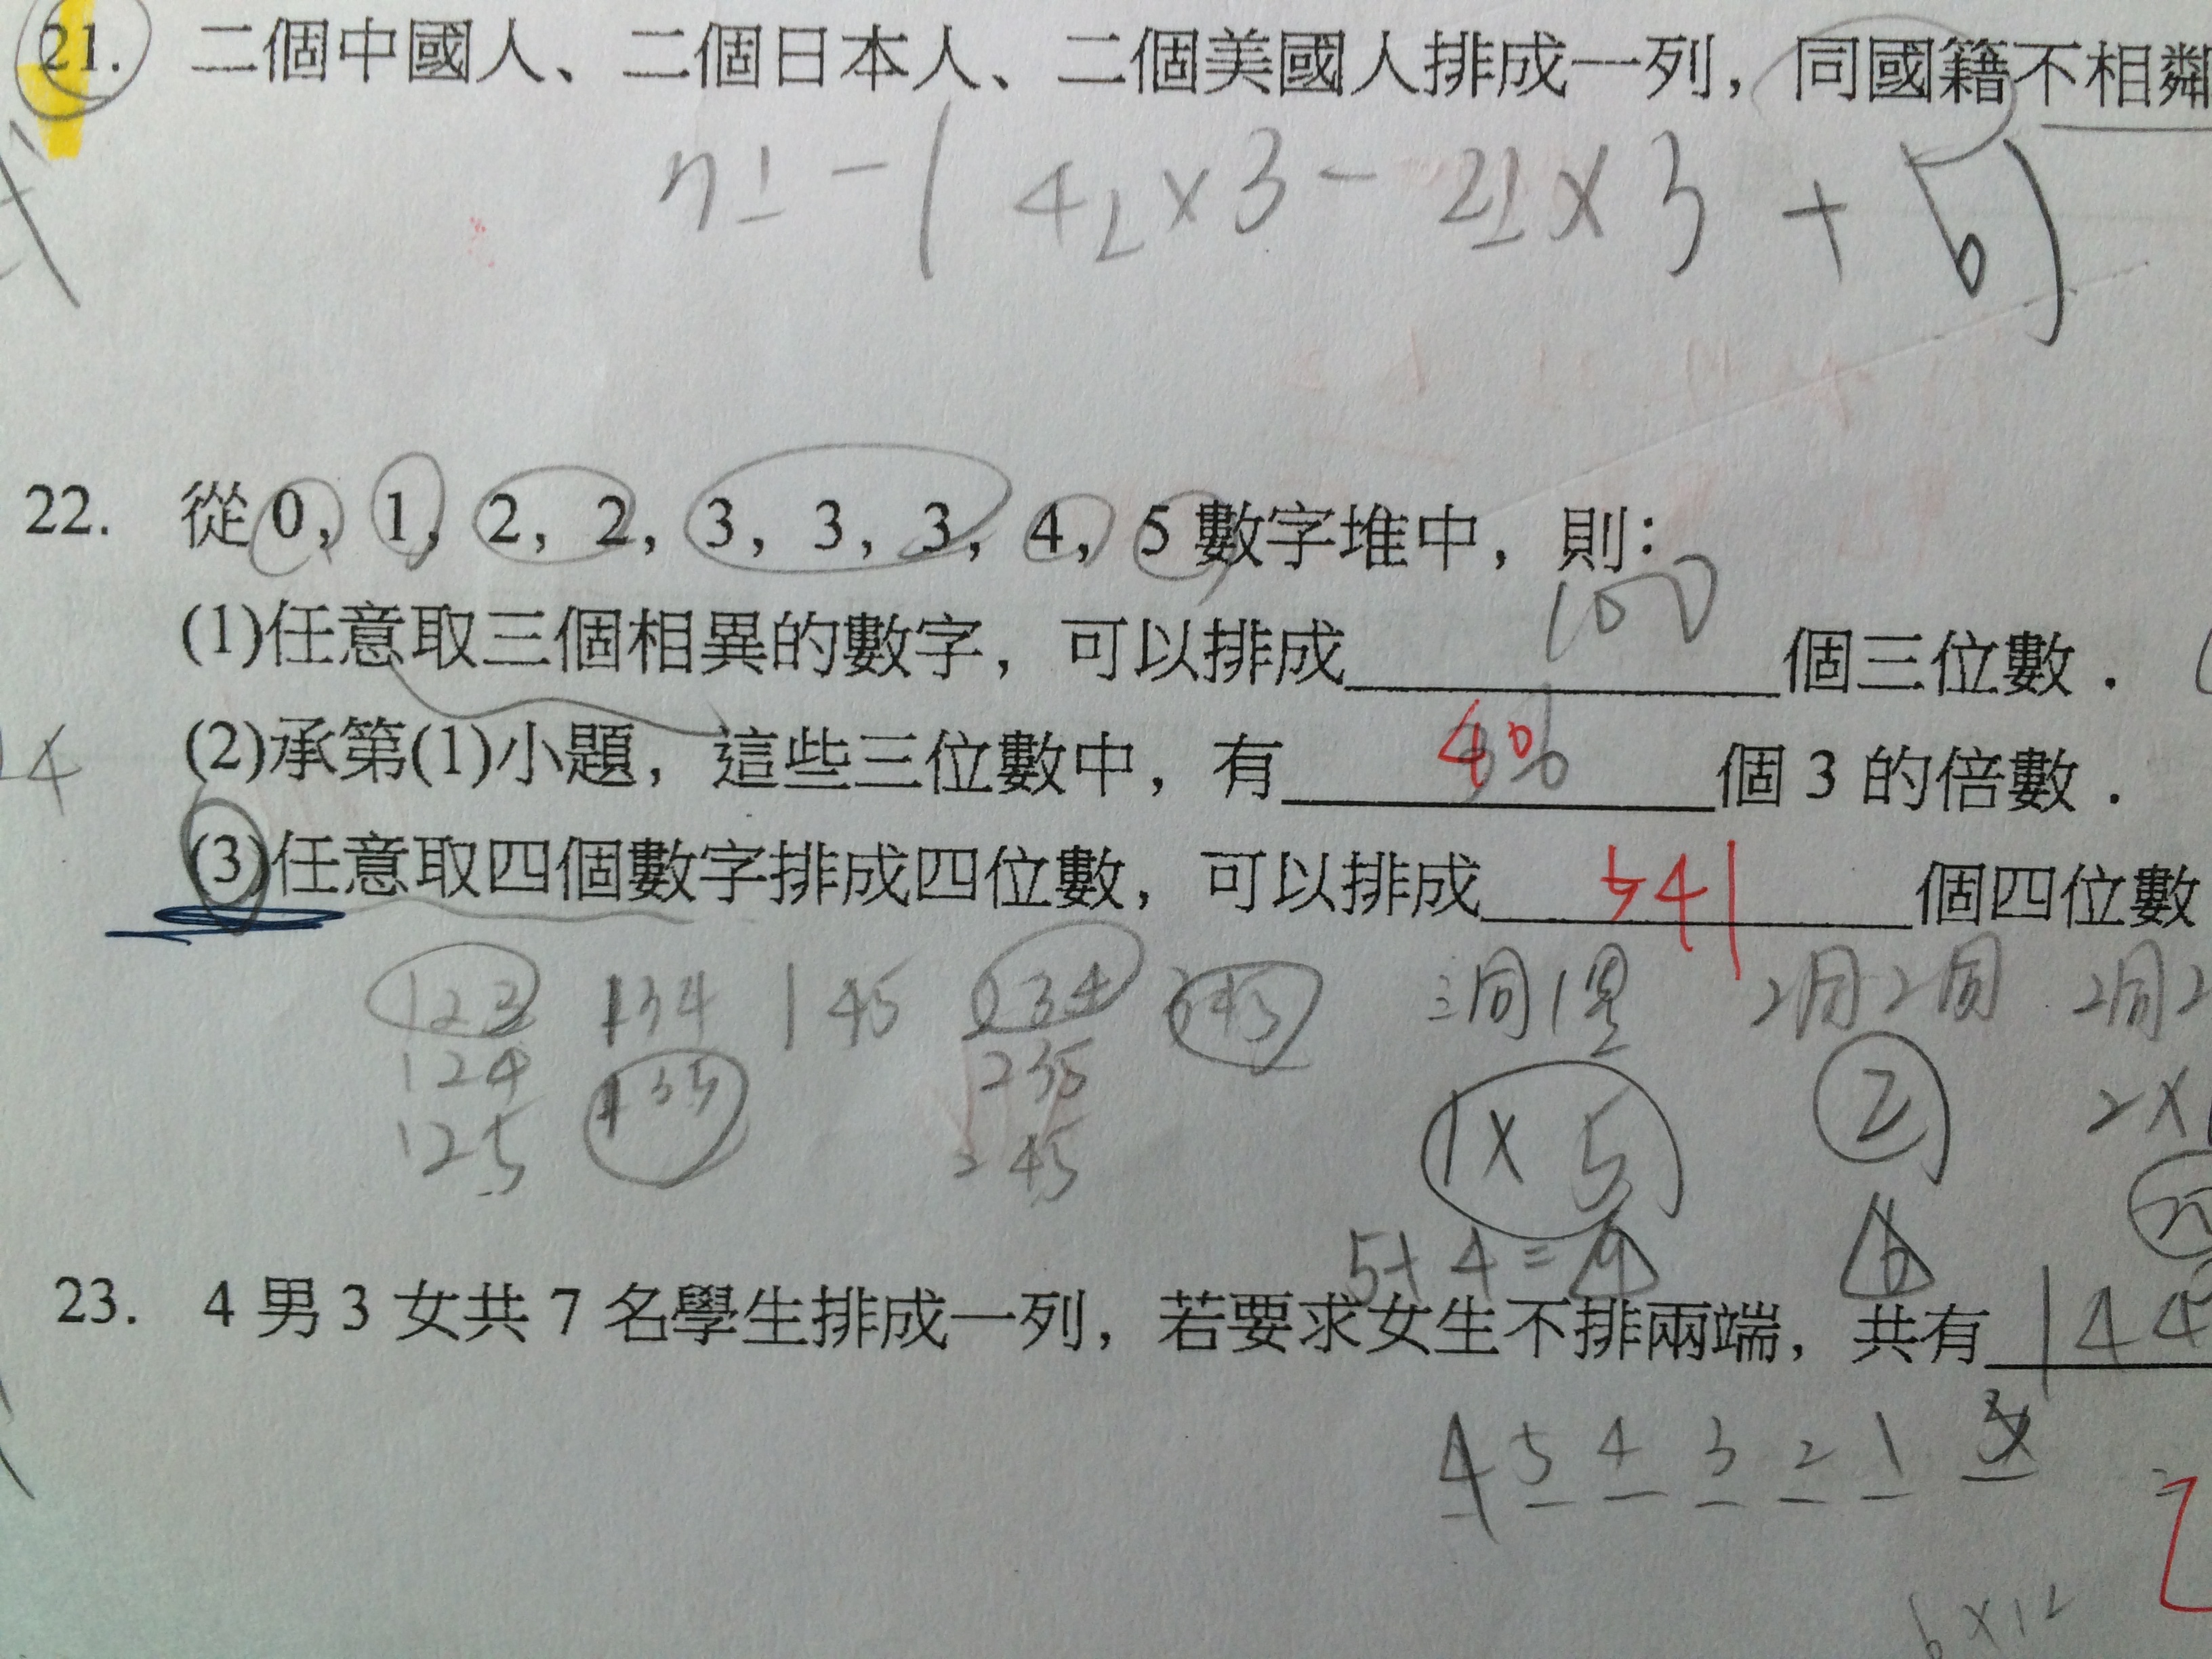 21. 二個中國人、二個日本人、二個美國人排成一列，同國籍不相鄰
22. 從 0，1，2，2，3，3，3，4，5 數字堆中，則：
(1)任意取三個相異的數字，可以排成 100 個三位數．
(2)承第(1)小題，這些三位數中，有 40 個 3 的倍數．
(3)任意取四個數字排成四位數，可以排成 541 個四位數
123 134 145 234 345
124 135 235
125 245
三同1異 2同2同 2同2
1×5 2 2×
5+4=9 6
23. 4 男 3 女共 7 名學生排成一列，若要求女生不排兩端，共有 144
4 5 4 3 2 1 3
6×12